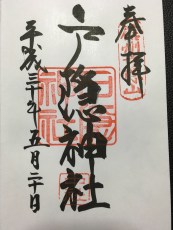 奉拝
戸隠神社
平成三十年五月二十日